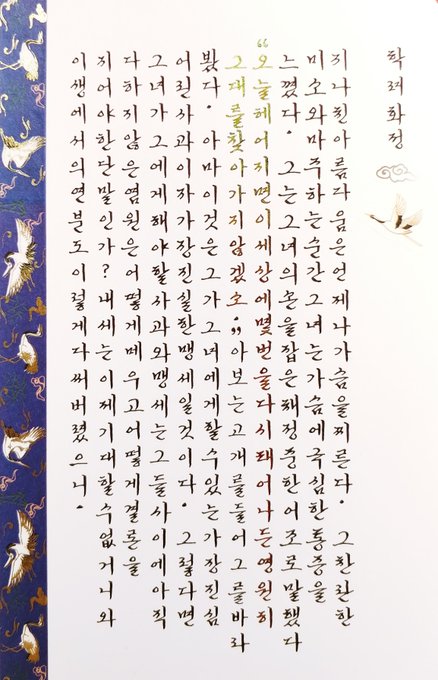 탁려화정
지나친아름다움은언제나가슴을찌른다. 그찬란한
미소와마주하는순간그녀는가슴에극심한통증을
느꼈다. 그는그녀의손을잡은채정중한어조로말했다
“오늘헤어지면이세상에몇번을다시태어나든영원히
그대를찾아가지않겠소.”아보는고개를들어그를바라
봤다. 아마이것은그가그녀에게할수있는가장진심
어린사과이자가장진실한맹세일것이다. 그렇다면
그녀가그에게해야할사과와맹세는그들사이에아직
다하지않은염원은어떻게메우고어떻게결론을
지어야한단말인가? 내세는이제기대할수없거니와
이생에서의연분도이렇게다써버렸으니.